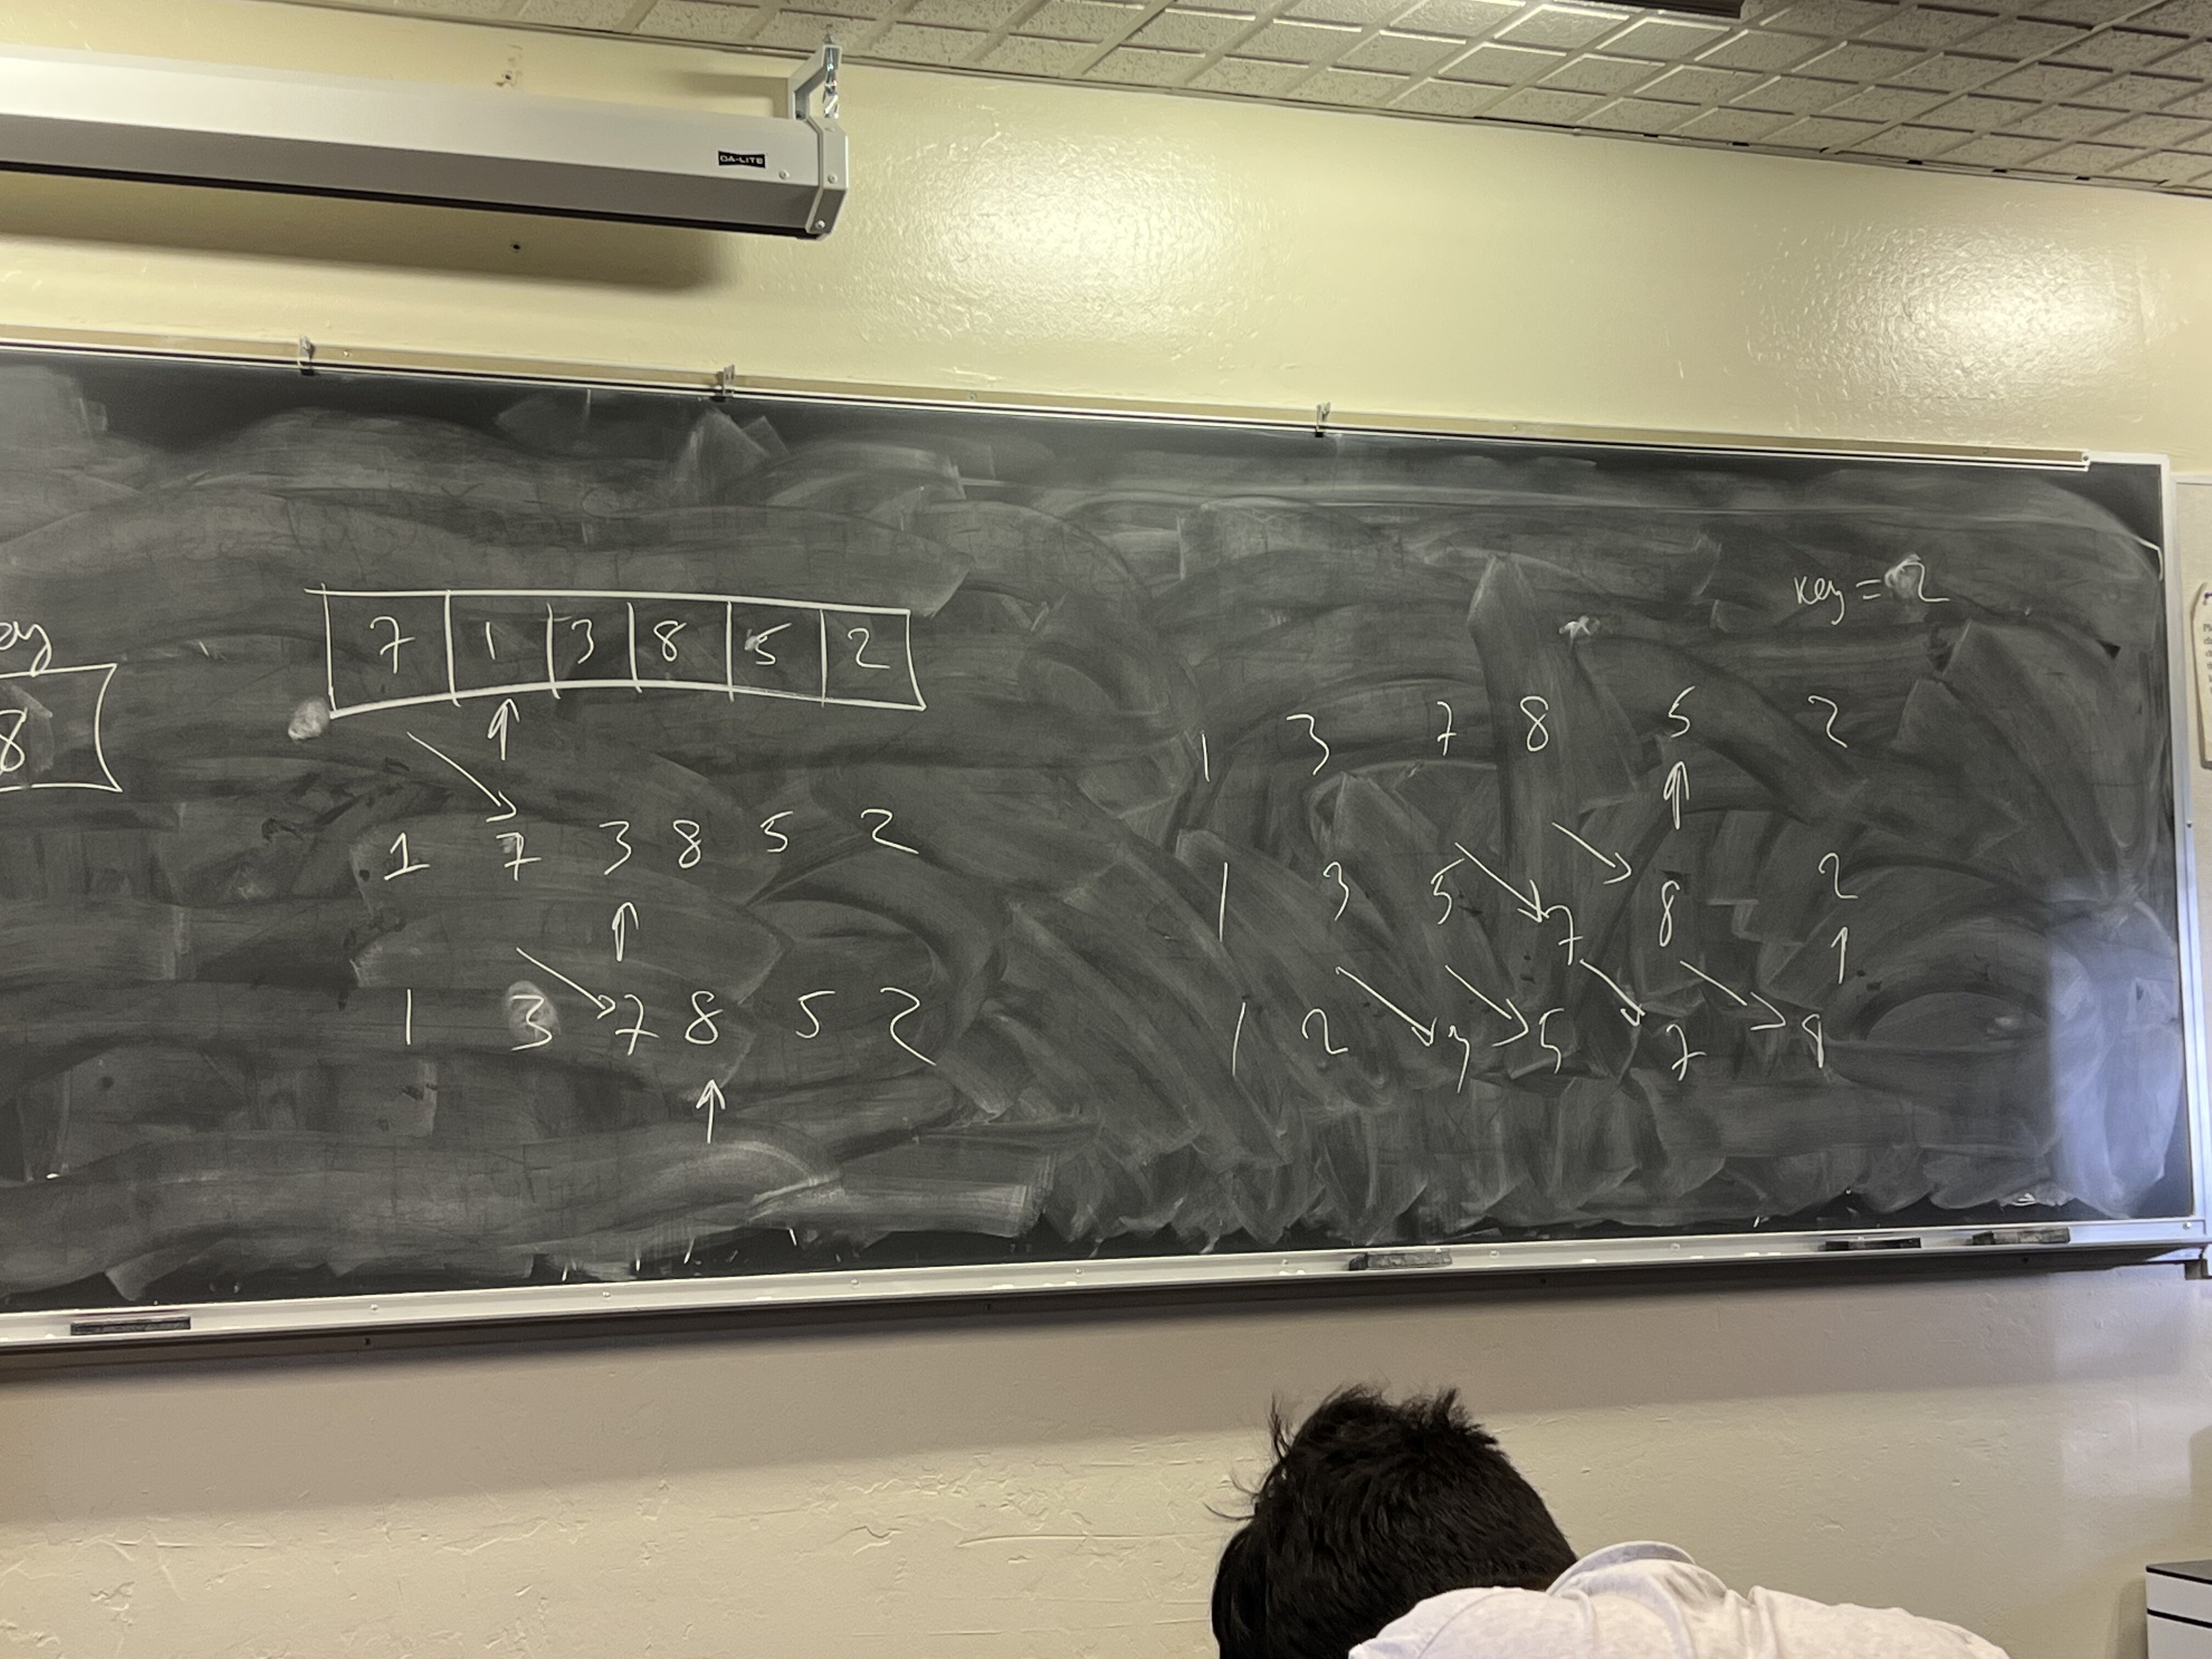 DA-LITE
8
7 1 3 8 5 2
1 7 3 8 5 2
1 3 7 8 5 2
key = 2
1 3 7 8 5 2
1 3 5 7 8 2
1 2 3 5 7 8